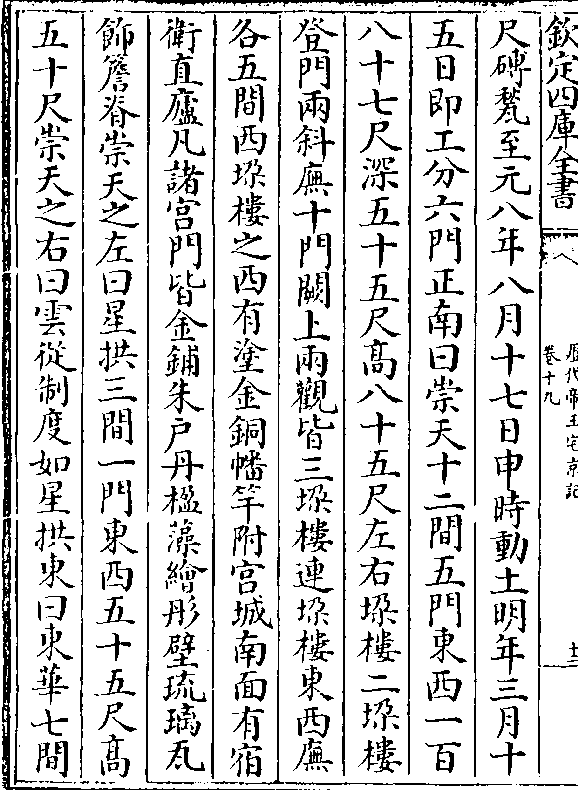 欽定四庫全書
歴代帝王宅京記
卷十九
十三
尺磚甃至元八年八月十七日申時動土明年三月十
五日即工分六門正南曰崇天十二間五門東西一百
八十七尺深五十五尺髙八十五尺左右垜樓二垜樓
登門兩斜廡十門闕上兩觀皆三垜樓連垜樓東西廡
各五間西垜樓之西有塗金銅幡竿附宫城南面有宿
衛直廬凡諸宫門皆金鋪朱戸丹楹藻繪彤壁琉璃瓦
飾簷脊崇天之左曰星拱三間一門東西五十五尺髙
五十尺崇天之右曰雲從制度如星拱東曰東華七間